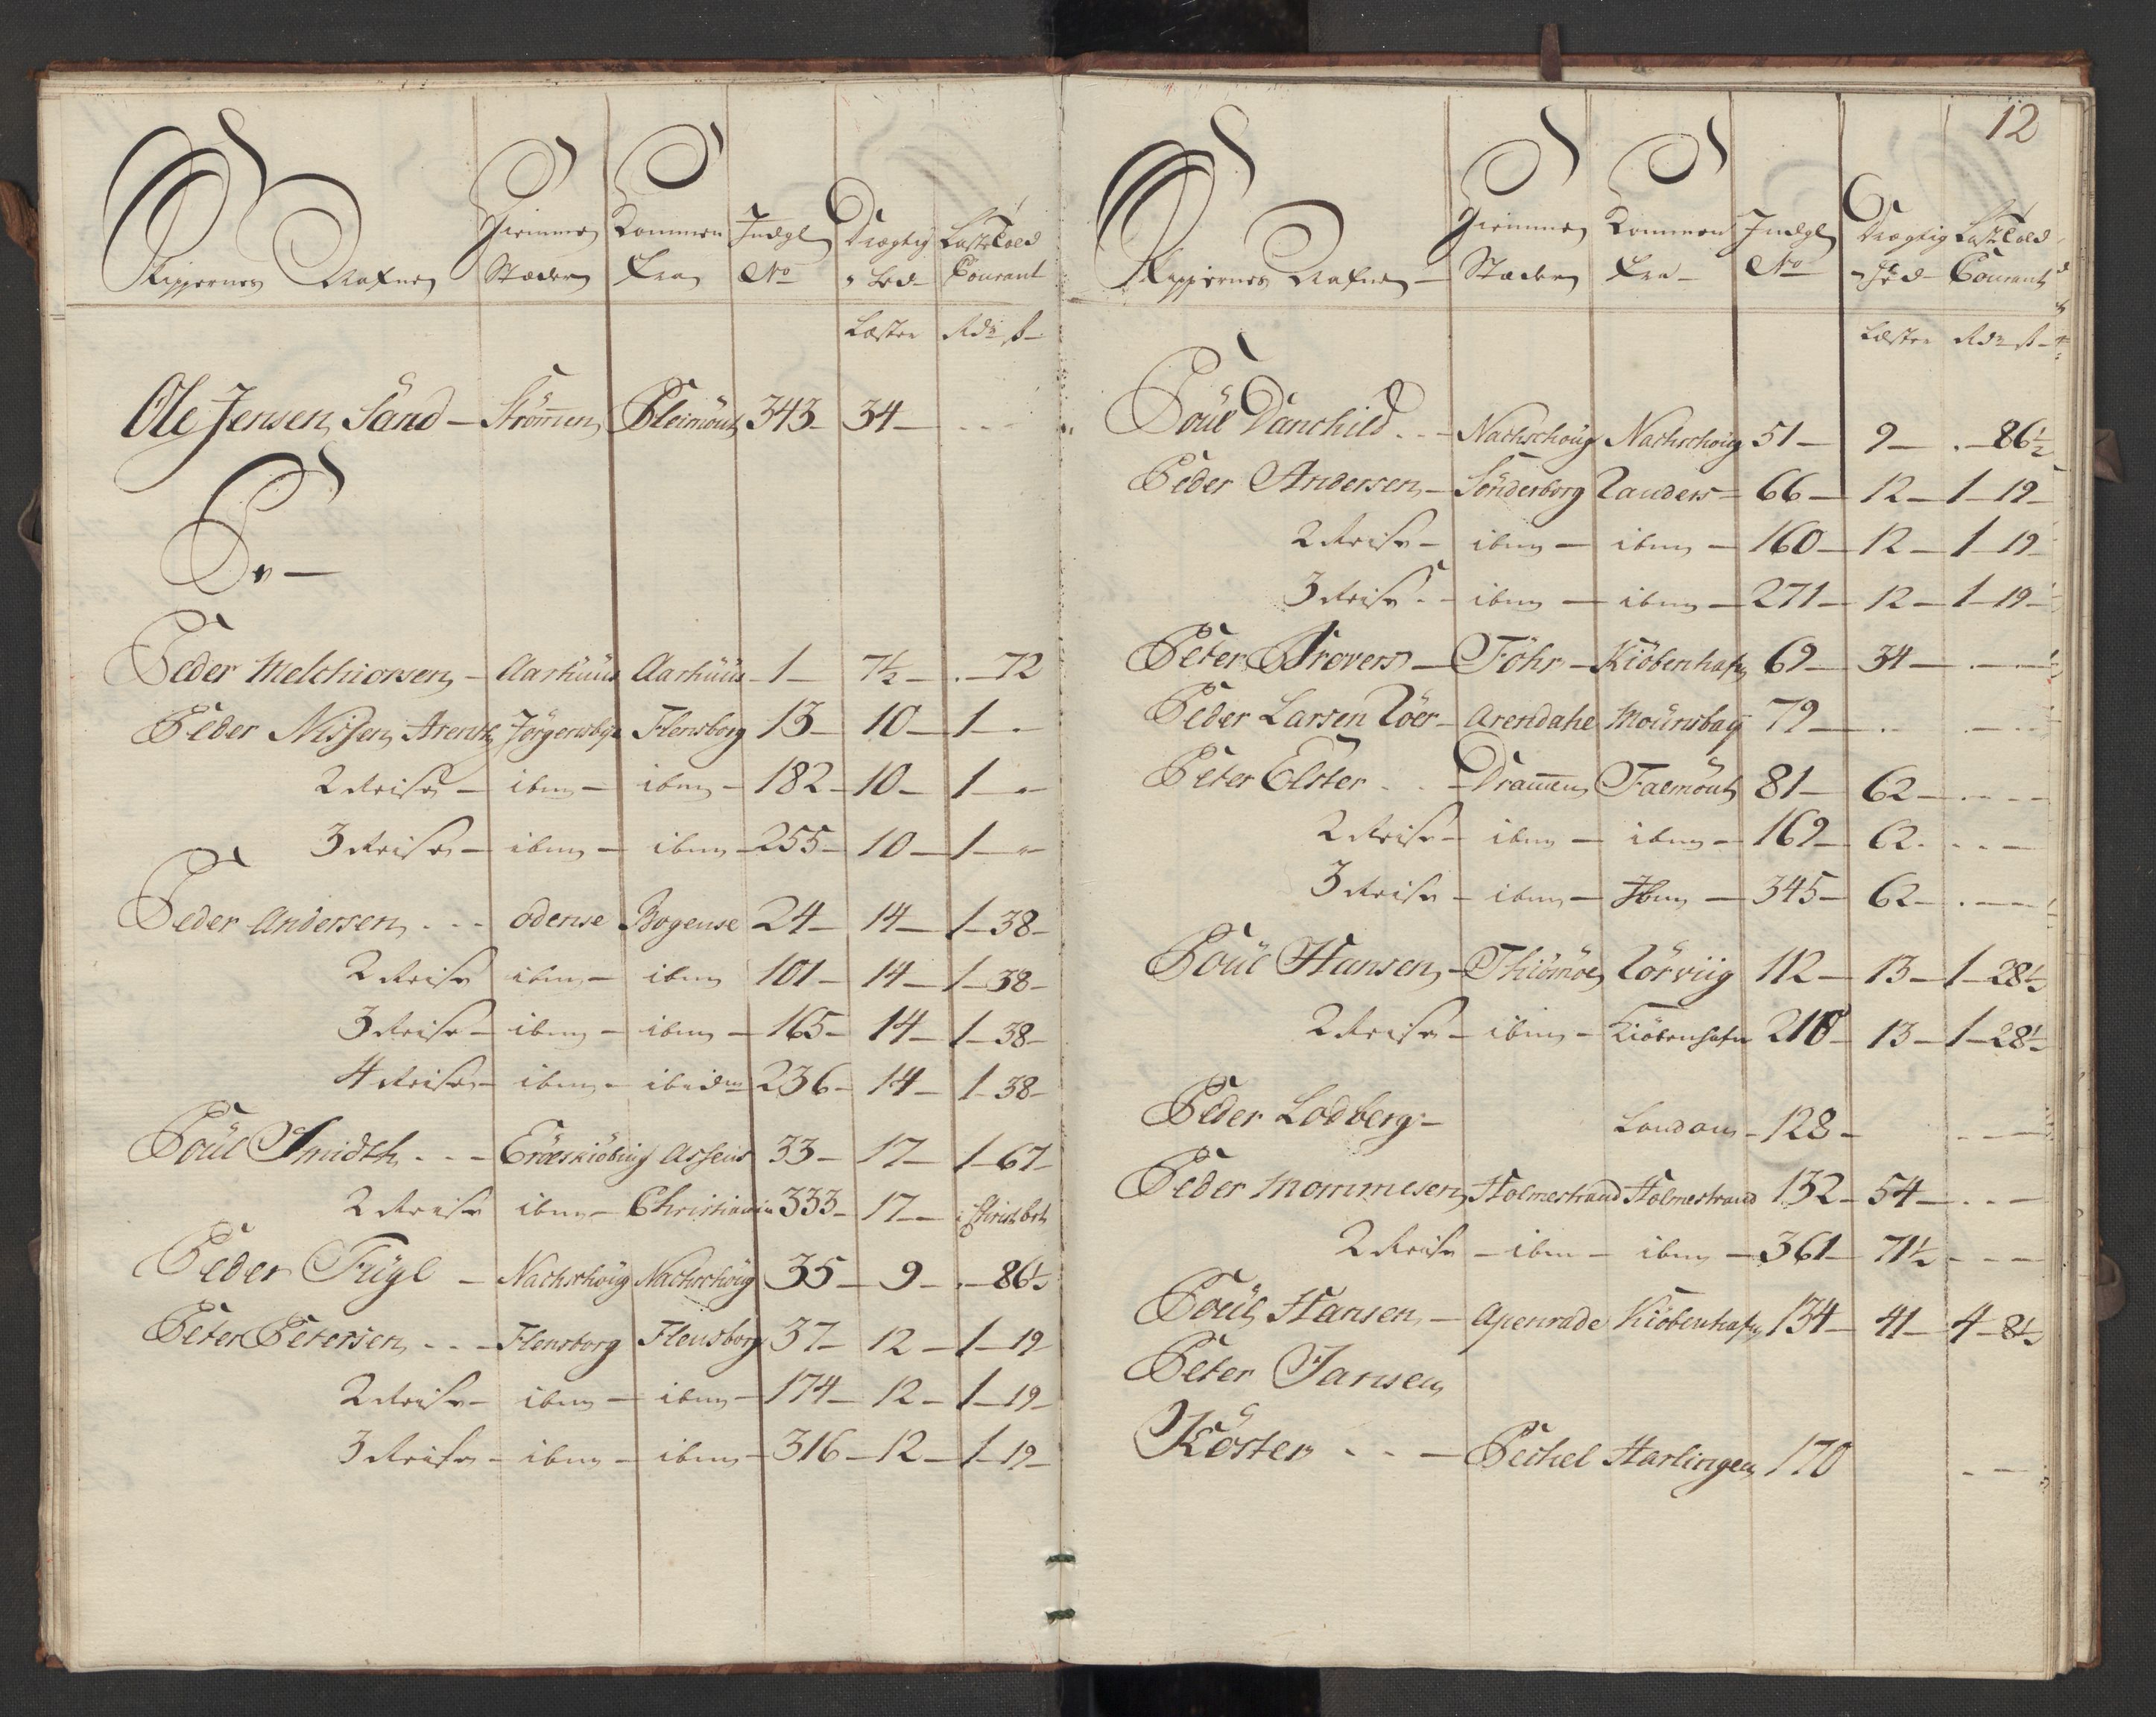 Skippernes Nafne Hiemme Steder Kommen Fra Indgl No Drægtighed Læste Told Courant
Læster Rdr s
Ole Jensen Sand - Strømen Pleimöuth 343 - 34 - - - -
P: -
Peder Melchiorsen - Aarhuus Aarhuus - 1 - 7½ - . - 72
Peder Nissen Arentz Jörgensbye Flensborg 13 - 10 - 1 - -
2 Reise - ibm - ibm - 182 - 10 - 1 - -
3 Reise - ibm - ibm - 255 - 10 - 1 - -
Peder Andersen - - - Odense Bogense 24 - 14 - 1 - 38 -
2 Reise ibm - ibm 101 - 14 - 1 - 38 -
3 Reise - ibm - ibm - 165 - 14 - 1 - 38 -
4 Reise - ibm - ibidm 236 - 14 - 1 - 38 -
Poül Smidth - - - Eröeskiöbing Assens 33 - 17 - 1 - 67 -
2 Reise ibm - Christiania 333 - 17 -
Peder Fügl - Nachschoüg Nachschoüg 35 - 9 - . - 86½
Peter Petersen - - - Flensborg Flensborg 37 - 12 - 1 - 19 -
2 Reise - ibm - ibm - 174 - 12 - 1 - 19 -
3 Reise - ibm - ibm - 316 - 12 - 1 - 19 -
12
Skippernes Nafne - Hiemme Steder Kommen Fra - Indgl No Drægtighed Læste Told Courant
Læster Rdr s
Poül Danchild - - - Nachschoüg Nachschoüg 51 - 9 - . - 86½
Peder Andersen - Sönderborg Randers - 66 - 12 - 1 - 19 -
2 Reise - ibm - ibm - 160 - 12 - 1 - 19 -
3 Reise - - ibm - ibm - 271 - 12 - 1 - 19 -
Peter Prevers - Föhr - Kiöbenhafn 69 - 34 - - - -
Peder Larsen Röer - Arendahl Moünsbay 79 - - - - - -
Peter Elster - - - Dramen Faemöuth 81 - 62 - - - -
2 Reise - ibm - ibm - 169 - 62 - - - -
3 Reise - ibm - Ibm - 345 - 62 - - - -
Poül Hansen - Thiömöe Rörviig 112 - 13 - 1 - 28½
2 Reise - ibm - Kiöbenhafn 210 - 13 - 1 - 28½
Peder Lodberg - London - 128 - - - -
Peder Mommesen Holmestrand Holmestrand 132 - 54 - - - -
2 Reise - ibm - ibm - 361 - 71½ - - - -
Poül Hansen - Apenrade Kiöbenhafn 134 - 41 - 4 - 8½
Peter Jansen
Köster - - - Peckel Harlingen 170 - -